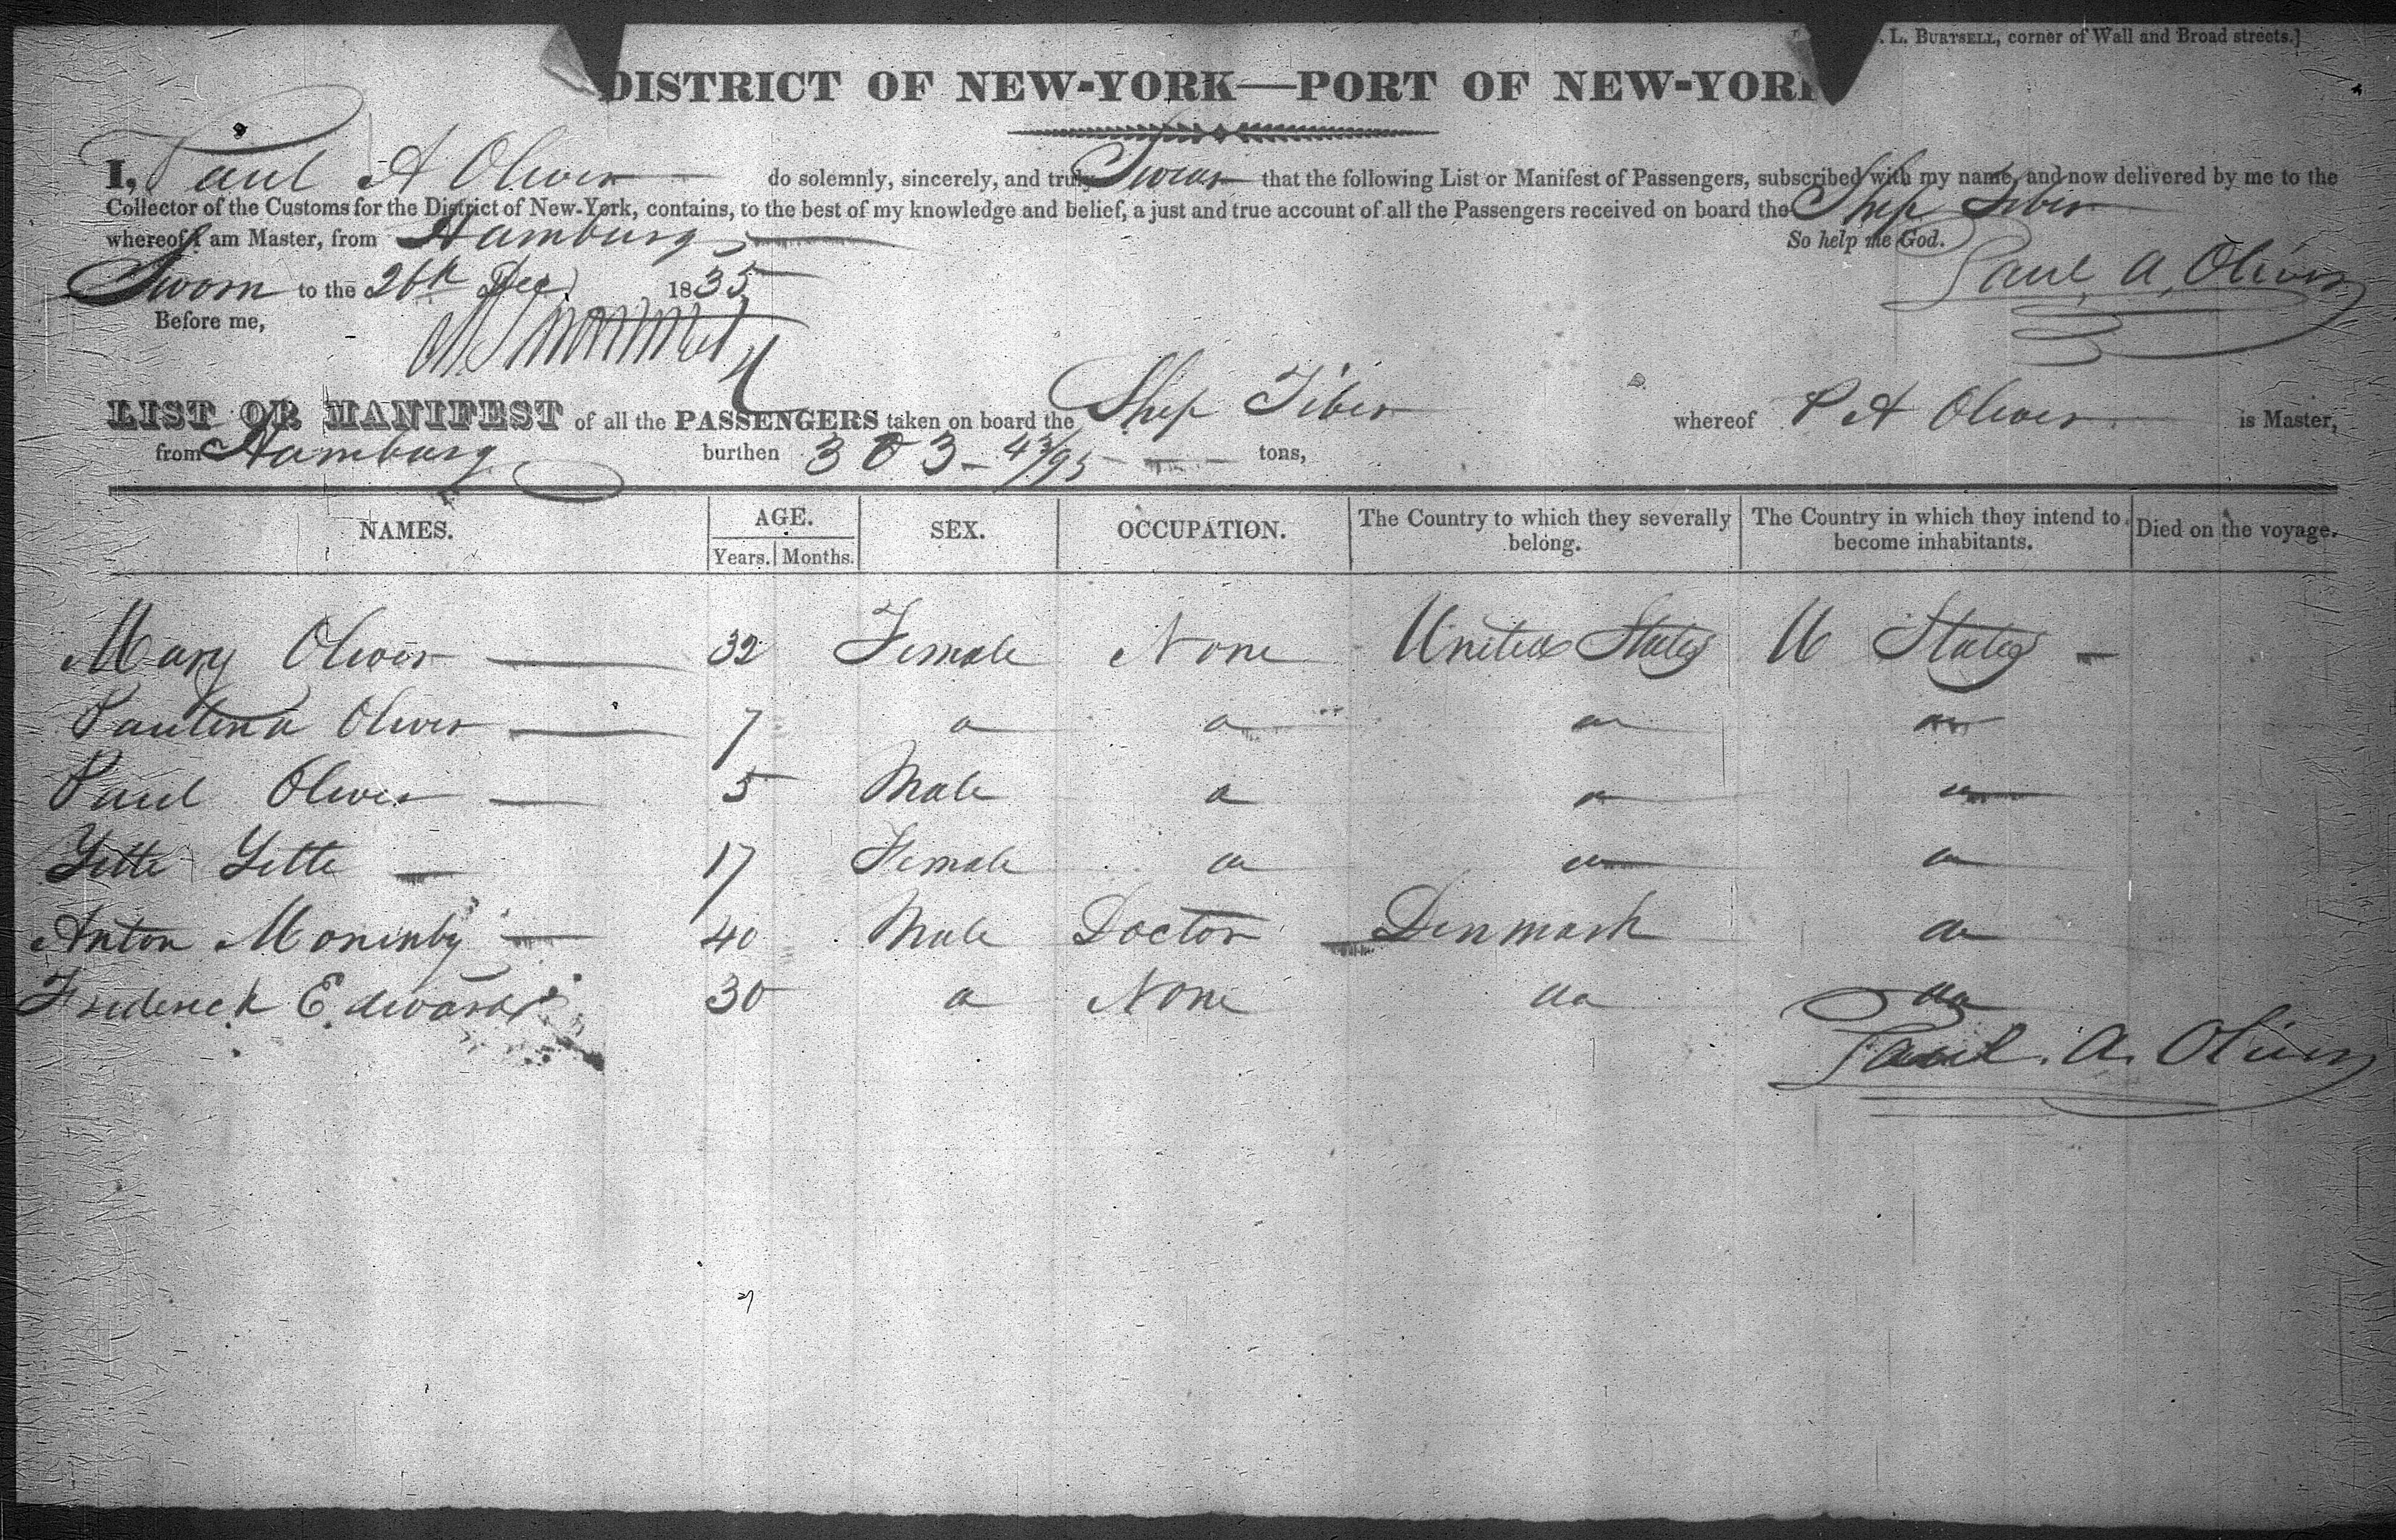 L. BURTSELL, corner of Wall and Broad streets.]
DISTRICT OF NEW-YORK—PORT OF NEW-YOR
I, Paul A Oliver do solemnly, sincerely, and truly Swear that the following List or Manifest of Passengers, subscribed with my name, and now delivered by me to the
Collector of the Customs for the District of New-York, contains, to the best of my knowledge and belief, a just and true account of all the Passengers received on board the Ship Tiber
whereof I am Master, from Hamburg So help me God.
Sworn to the 26th Dec 1835 Paul. A. Oliver
Before me,
LIST OR MANIFEST of all the PASSENGERS taken on board the Ship Tiber whereof P A Oliver is Master,
from Hamburg burthen 303-43/95 tons,
NAMES. AGE. Years. Months. SEX. OCCUPATION. The Country to which they severally belong. The Country in which they intend to become inhabitants. Died on the voyage.
Mary Oliver 32 Female None United States U States
Paulina Oliver 7 do do do do
Paul Oliver 5 Male do do do
Yette Yette 17 Female do do do
Anton 40 Male Doctor Denmark do
Frederick Edwards 30 do None do do
Paul. A. Oliver